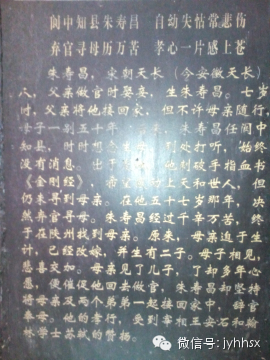 阆中知县朱寿昌 自幼失怙常悲伤
弃官寻母历万苦 孝心一片感上苍
朱寿昌，宋朝天长（今安徽天长）
人，父亲做官时娶妾，生朱寿昌。七岁
时，父亲将他接回家，但不许母亲同行，
母子一别五十年。朱寿昌任阆中
知县，时时想念生母，到处打听，始终
没有消息。出于 他刺破手指血书
《金刚经》， 上天和世人，但
仍未寻到母亲。在他五十七岁那年，决
然弃官寻母。朱寿昌经过千辛万苦，终
于在陕州找到母亲。原来，母亲迫于生
计，已经改嫁，并生有二子。母子相见，
悲喜交加。母亲见了儿子，了却多年心
愿，便催促他回去做官，朱寿昌却坚持
将母亲及两个弟弟一起接回家中，辞官
奉母。他的孝行，受到宰相王安石和翰
林学士苏轼的赞扬。
微信号：jyhhsx